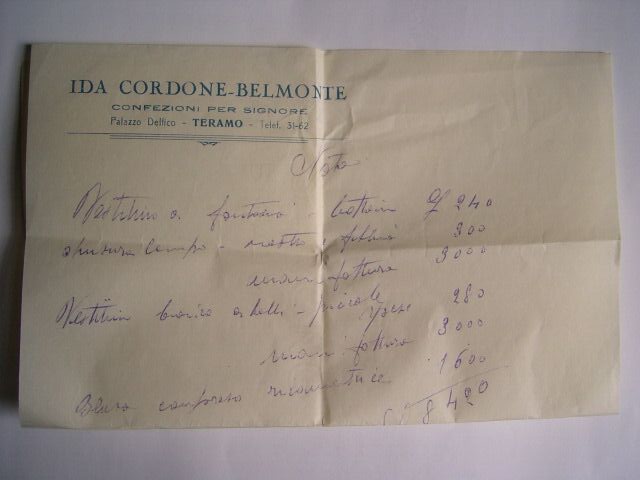 IDA CORDONE-BELMONTE
CONFEZIONI PER SIGNORE
Palazzo Delfico - TERAMO - Telef. 31-62
Nota
Vestitino a fantasia - £ 240
lampo - nastro e fibbia 300
manifattura 3000
Vestitino bianco a - piccole spese 280
manifattura 3000
compreso ricamatrice 1600
£ 8420